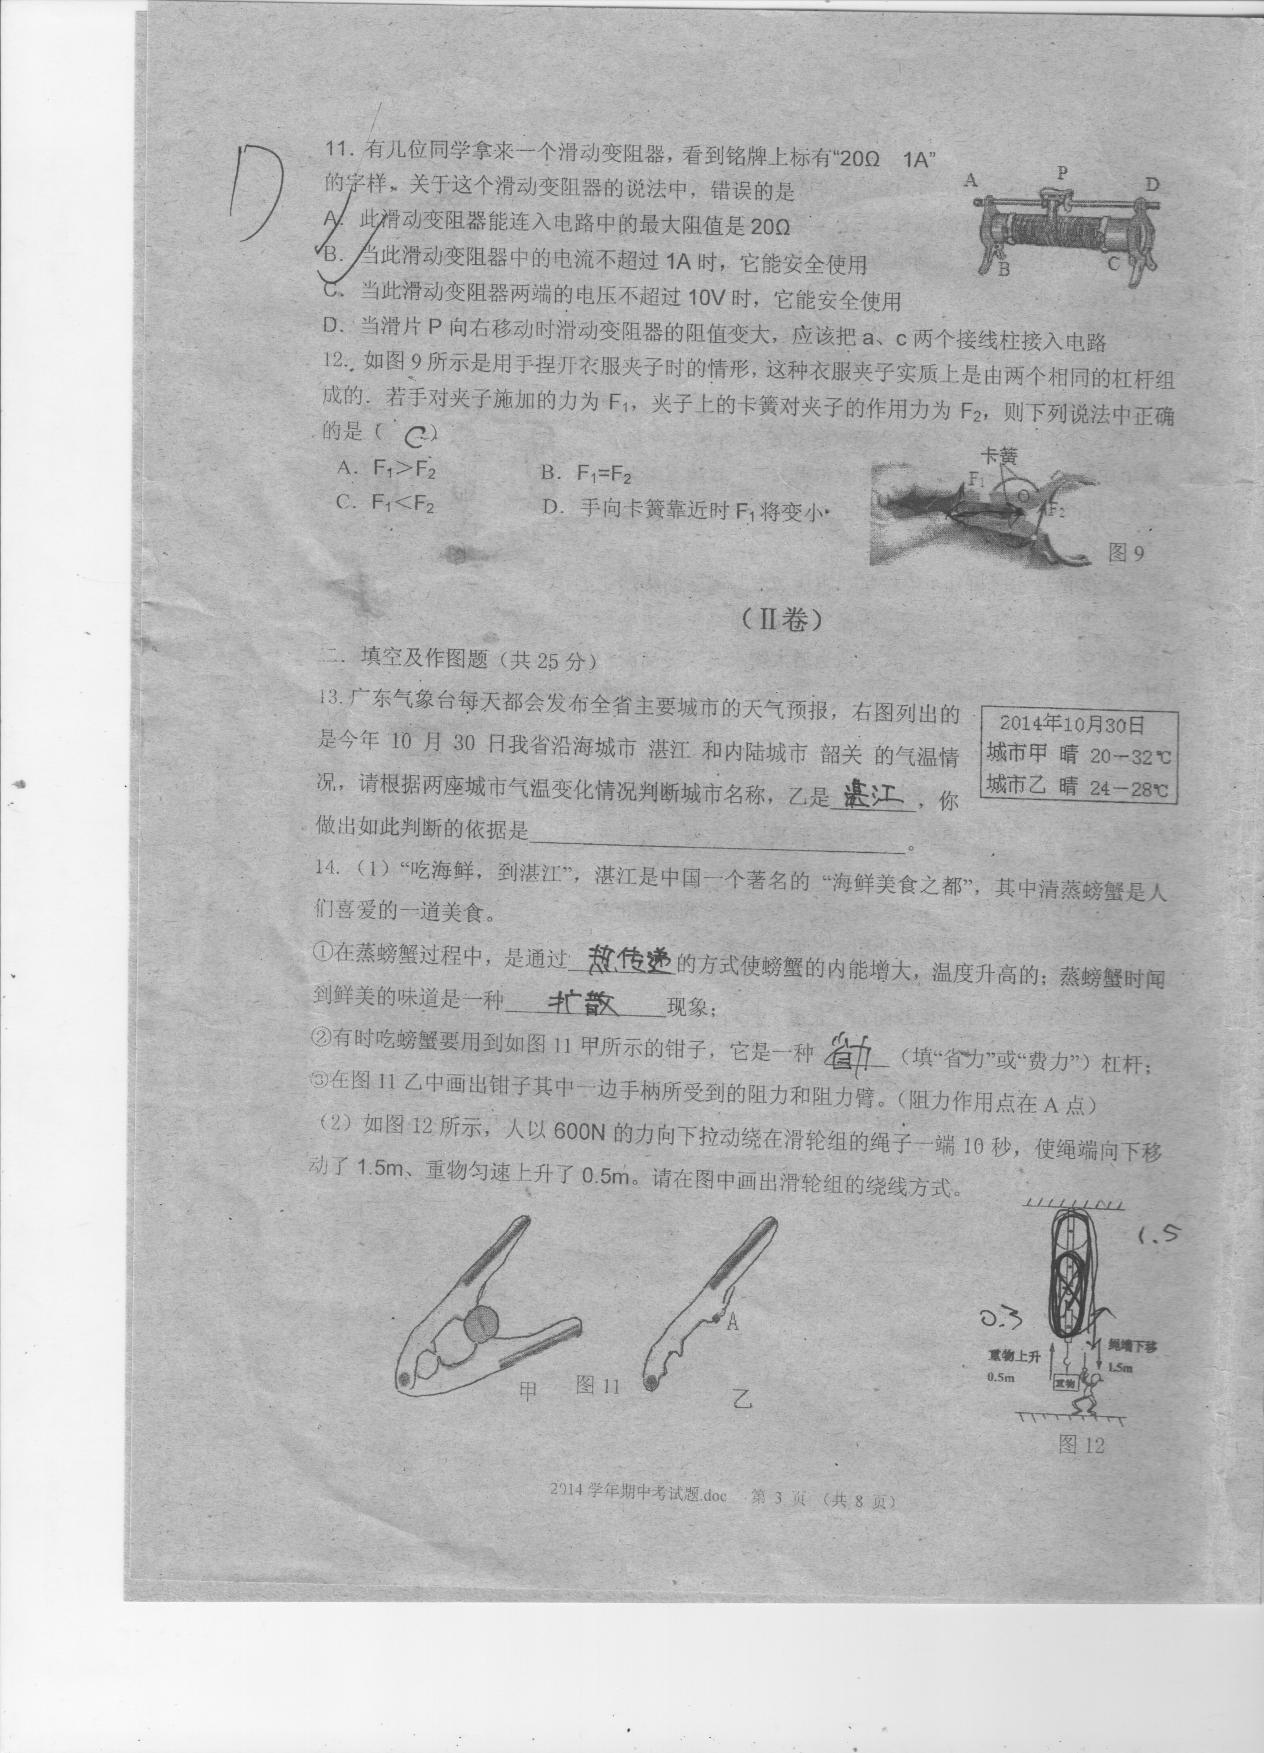 D
11. 有几位同学拿来一个滑动变阻器，看到铭牌上标有“20Ω 1A”
的字样，关于这个滑动变阻器的说法中，错误的是
A. 此滑动变阻器能连入电路中的最大阻值是20Ω
B. 当此滑动变阻器中的电流不超过1A时，它能安全使用
C. 当此滑动变阻器两端的电压不超过10V时，它能安全使用
D. 当滑片P向右移动时滑动变阻器的阻值变大，应该把a、c两个接线柱接入电路
A P D
B C
12. 如图9所示是用手捏开衣服夹子时的情形，这种衣服夹子实质上是由两个相同的杠杆组
成的．若手对夹子施加的力为F₁，夹子上的卡簧对夹子的作用力为F₂，则下列说法中正确
的是（ C ）
A. F₁＞F₂ B. F₁=F₂
C. F₁＜F₂ D. 手向卡簧靠近时F₁将变小
卡簧
F₁ O F₂
图9
（Ⅱ卷）
二．填空及作图题（共25分）
13. 广东气象台每天都会发布全省主要城市的天气预报，右图列出的
是今年 10 月 30 日我省沿海城市 湛江 和内陆城市 韶关 的气温情
况，请根据两座城市气温变化情况判断城市名称，乙是 湛江 ，你
做出如此判断的依据是 。
2014年10月30日
城市甲 晴 20－32℃
城市乙 晴 24－28℃
14.（1）“吃海鲜，到湛江”，湛江是中国一个著名的 “海鲜美食之都”，其中清蒸螃蟹是人
们喜爱的一道美食。
①在蒸螃蟹过程中，是通过 热传递 的方式使螃蟹的内能增大，温度升高的；蒸螃蟹时闻
到鲜美的味道是一种 扩散 现象；
②有时吃螃蟹要用到如图11甲所示的钳子，它是一种 省力 （填“省力”或“费力”）杠杆；
③在图11乙中画出钳子其中一边手柄所受到的阻力和阻力臂。（阻力作用点在A点）
（2）如图12所示，人以600N的力向下拉动绕在滑轮组的绳子一端10秒，使绳端向下移
动了1.5m、重物匀速上升了0.5m。请在图中画出滑轮组的绕线方式。
甲 图11 A 乙
1.5
0.3
重物上升
0.5m
重物
绳端下移
1.5m
图12
2014学年期中考试题.doc 第 3 页 （共 8 页）